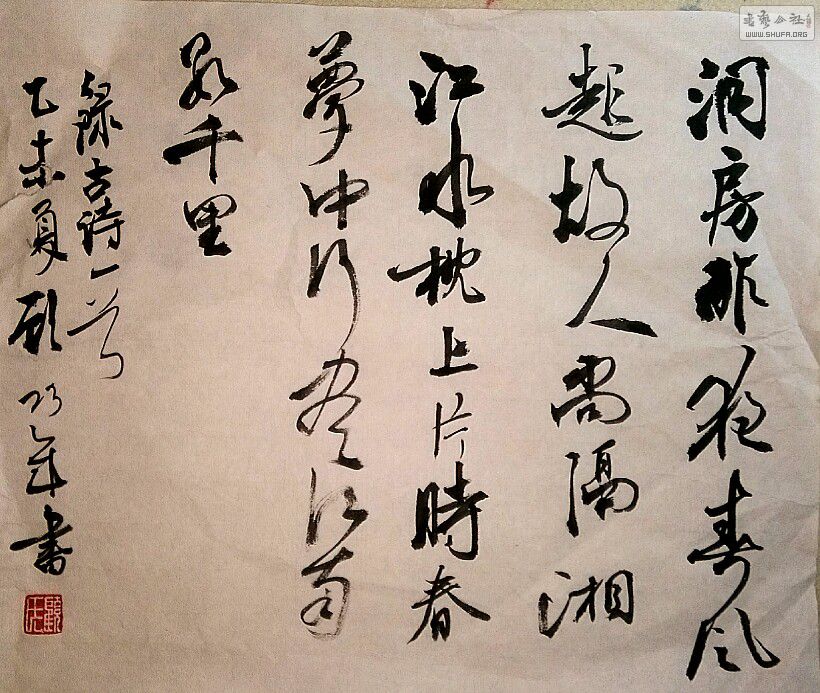 洞房昨夜春风
起故人尚隔湘
江水枕上片時春
夢中行尽江南
数千里
録古诗一首
乙未夏顾年書
書藝公社
WWW.SHUFA.ORG